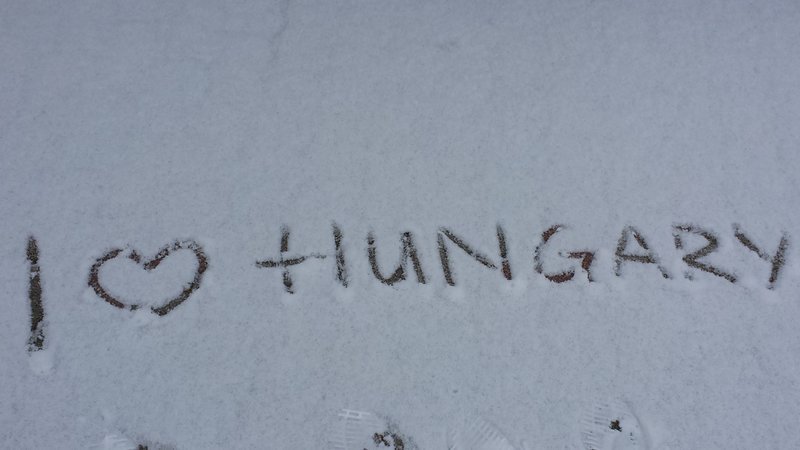 I ♡ HUNGARY